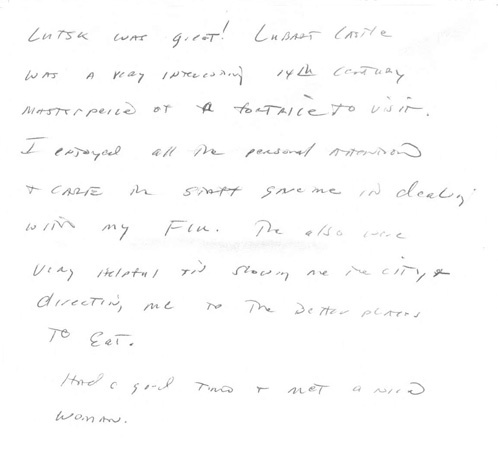 Lutsk was great! Lubart Castle
was a very interesting 14th century
masterpiece of a fortrice to visit.
I enjoyed all the personal attention
& care the staff gave me in dealing
with my Flu. The also were
very helpful in showing me the city &
directing me to the better places
to Eat.
Had a good time & met a nice
woman.